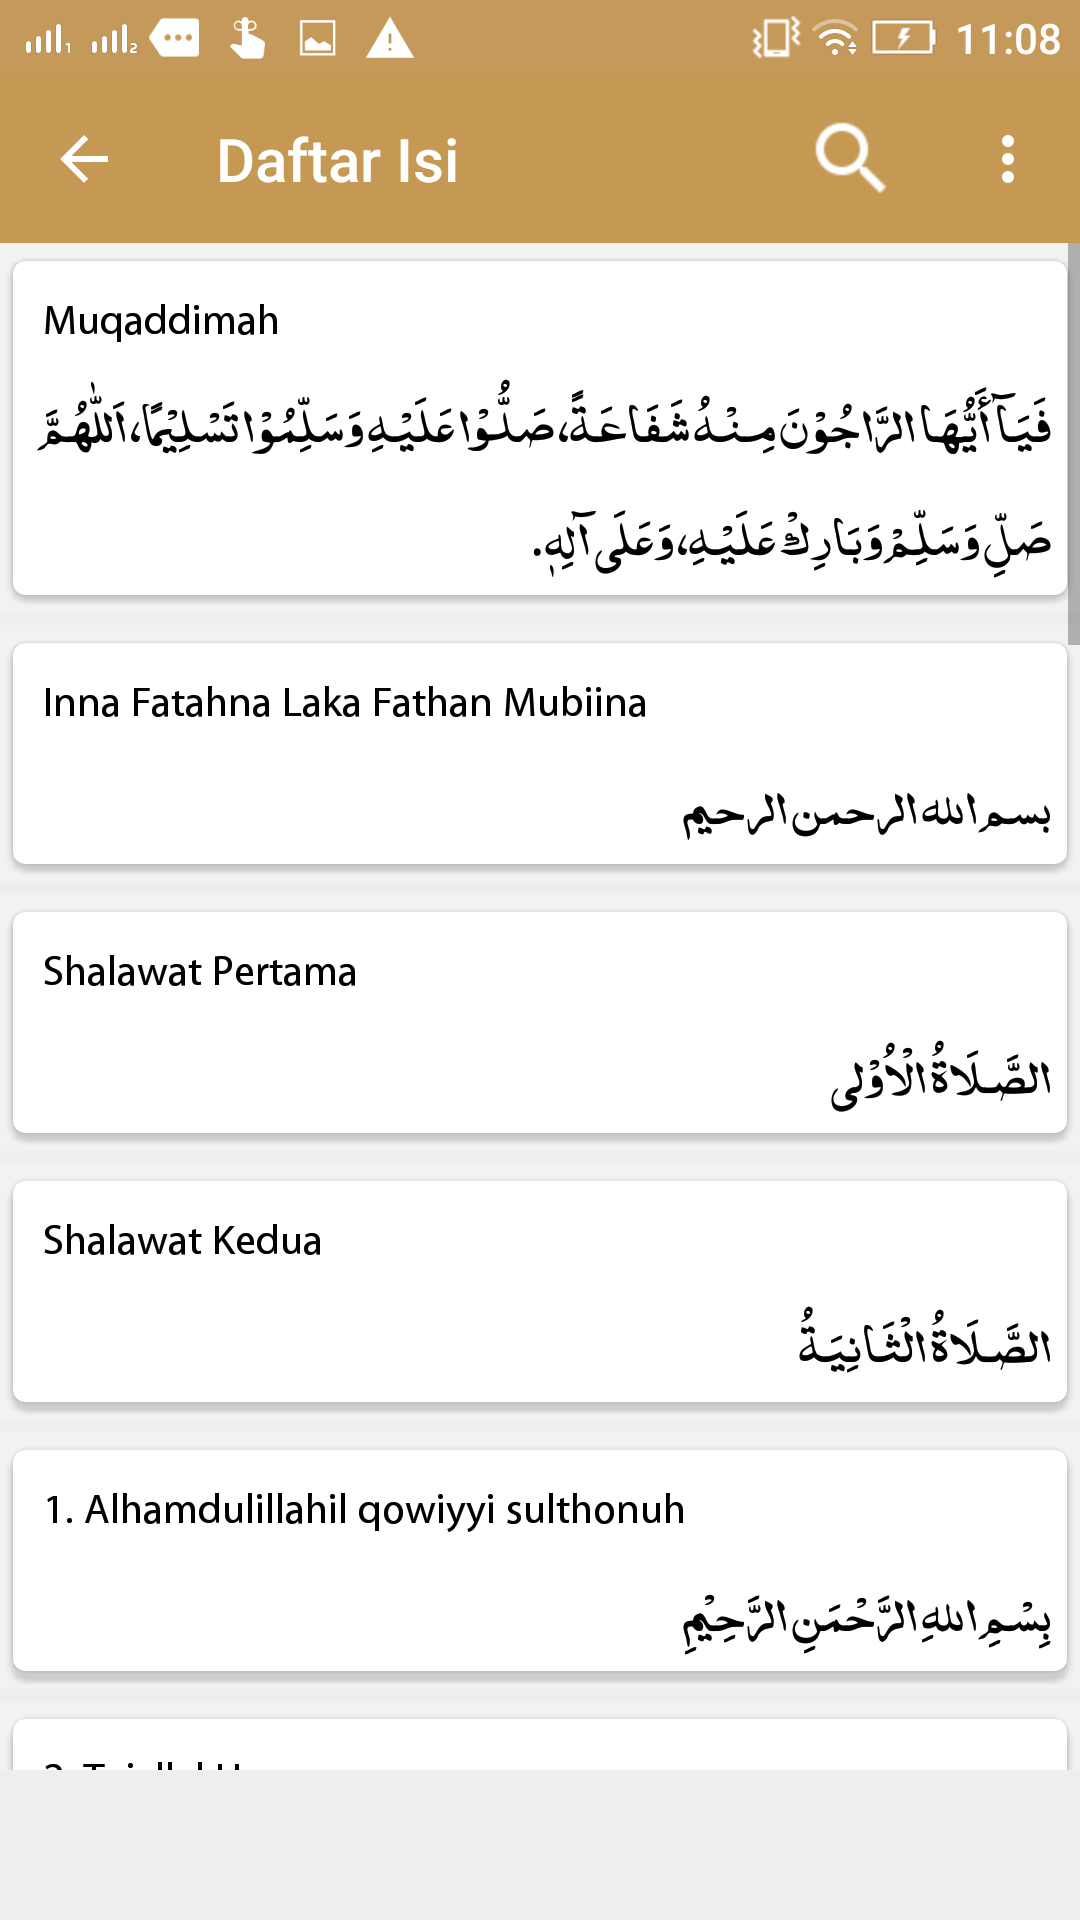 11:08
Daftar Isi
Muqaddimah
فَيَآ أَيُّهَا الرَّاجُوْنَ مِنْهُ شَفَاعَةً، صَلُّوْا عَلَيْهِ وَسَلِّمُوْا تَسْلِيْمًا، اَللّٰهُمَّ
صَلِّ وَسَلِّمْ وَبَارِكْ عَلَيْهِ، وَعَلَى آلِهٖ.
Inna Fatahna Laka Fathan Mubiina
بسم الله الرحمن الرحيم
Shalawat Pertama
الصَّلَاةُ الْاُوْلى
Shalawat Kedua
الصَّلَاةُ الْثَانِيَةُ
1. Alhamdulillahil qowiyyi sulthonuh
بِسْمِ اللهِ الرَّحْمَنِ الرَّحِيْمِ